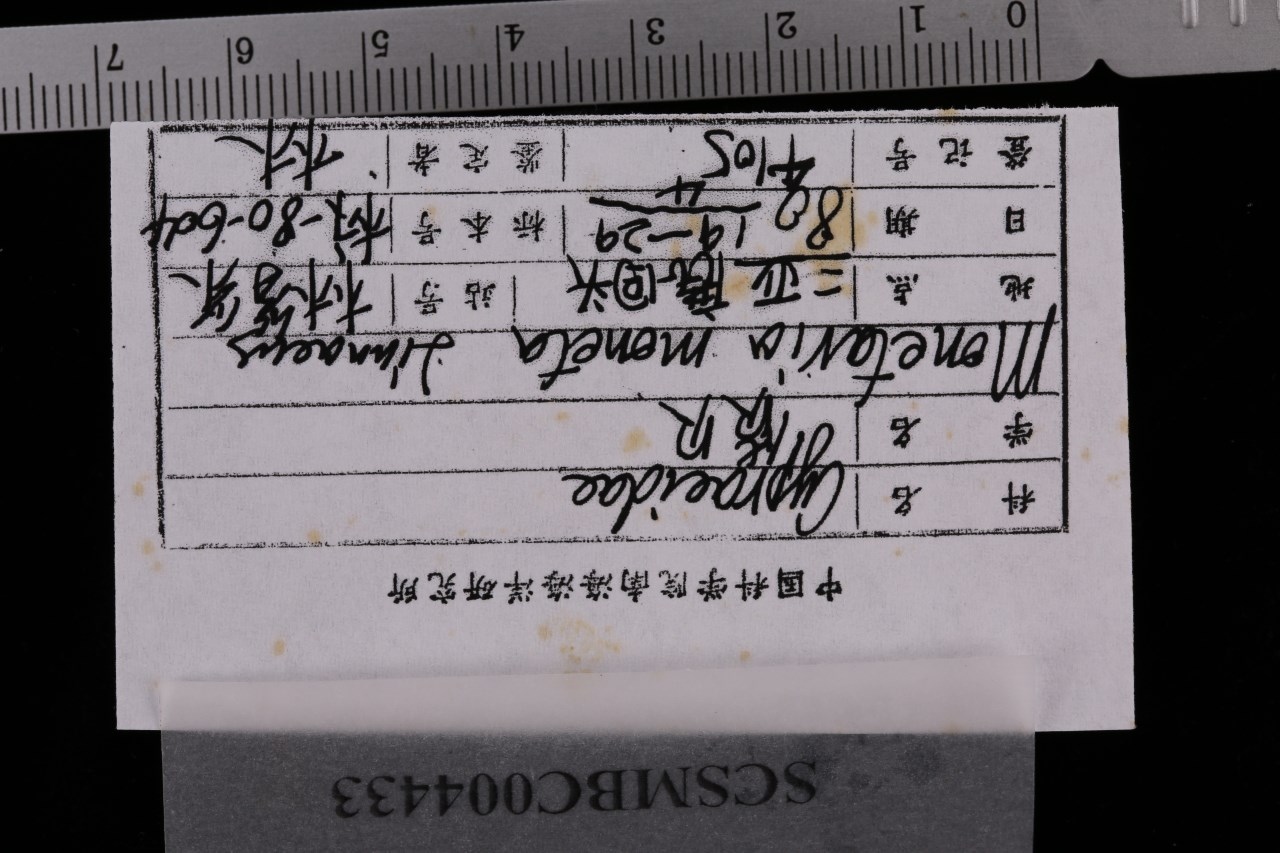 SCSMBC004433
中国科学院南海海洋研究所
科名 Cypraeidae
学名 货贝
Monetaria moneta Linnaeus
地点 三亚 鹿回头 站号 林
日期 80 19-29/4 标本号 林-80-604
登记号 4105 鉴定者 林
0 1 2 3 4 5 6 7